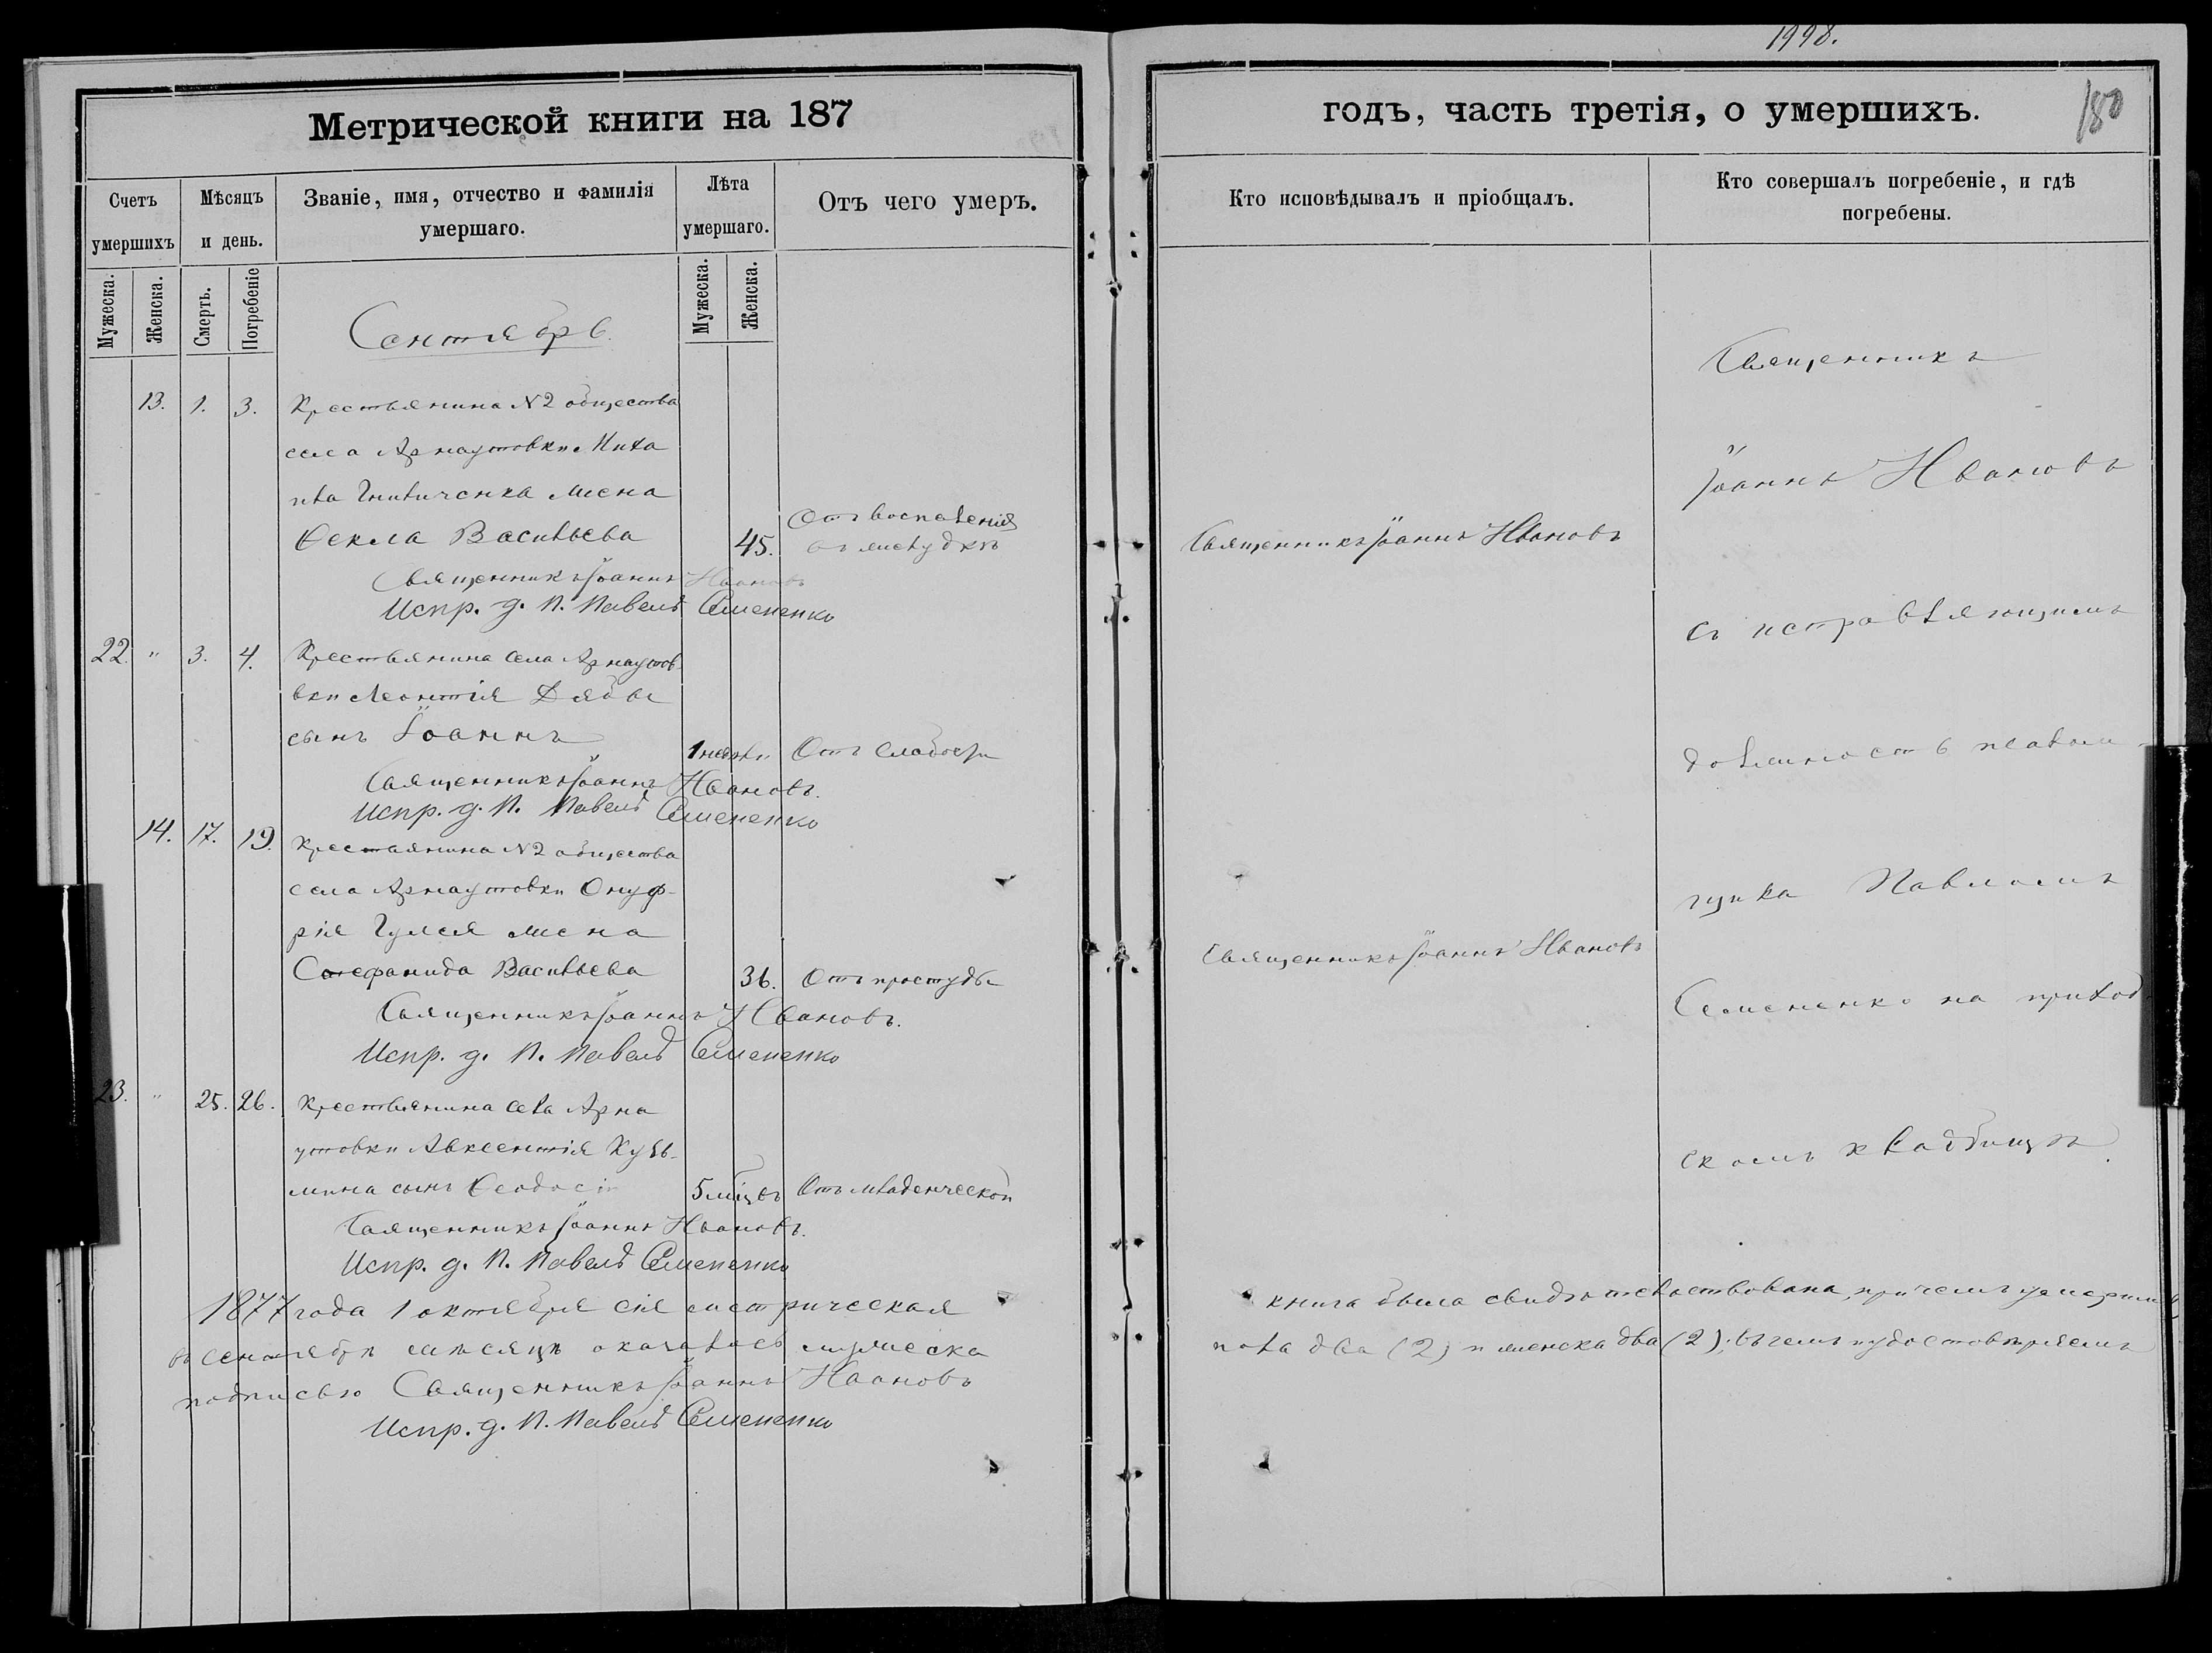 1998.
Метрической книги на 187
годъ, часть третія, о умершихъ.
180
Счетъ умершихъ
Мѣсяцъ и день.
Званіе, имя, отчество и фамилія умершаго.
Лѣта умершаго.
Отъ чего умеръ.
Кто исповѣдывалъ и пріобщалъ.
Кто совершалъ погребеніе, и гдѣ погребены.
Мужеска.
Женска.
Смерть.
Погребеніе
Мужеска.
Женска.
Сентябрь.
13. 1. 3. Крестьянина №2 общества
села Арнаутовки Миха
ила жена
Ѳекла Васильева 45. Отъ воспаленія
въ желудкѣ
Священникъ Іоаннъ Ивановъ
Священникъ Іоаннъ Ивановъ
Испр. д. П. Павелъ Семененко
22. " 3. 4. Крестьянина села Арнаутов
вки Леонтія
сынъ Іоаннъ 1 недѣли Отъ слабости
Священникъ Іоаннъ Ивановъ.
Испр. д. П. Павелъ Семененко
14. 17. 19. Крестьянина №2 общества
села Арнаутовки Онуф-
рія Гулея жена
Стефанида Васильева 36. Отъ простуды
Священникъ Іоаннъ Ивановъ
Священникъ Іоаннъ Ивановъ.
Испр. д. П. Павелъ Семененко
23. " 25. 26. Крестьянина села Арна
утовки Авксентія Кузь-
мина сынъ Ѳеодосій 5 мѣцвъ Отъ младенческой
Священникъ Іоаннъ Ивановъ.
Испр. д. П. Павелъ Семененко
Священникъ
Іоаннъ Ивановъ
съ исправляющимъ
должность псалом-
щика Павломъ
Семененко на приход-
скомъ кладбищѣ.
1877 года 1 октября сія метрическая книга была свидѣтельствована, при чемъ умершихъ
въ сентябрѣ мѣсяцѣ оказалось мужеска пола два (2) и женска два (2); въ чемъ и удостовѣряемъ
подписью Священникъ Іоаннъ Ивановъ
Испр. д. П. Павелъ Семененко